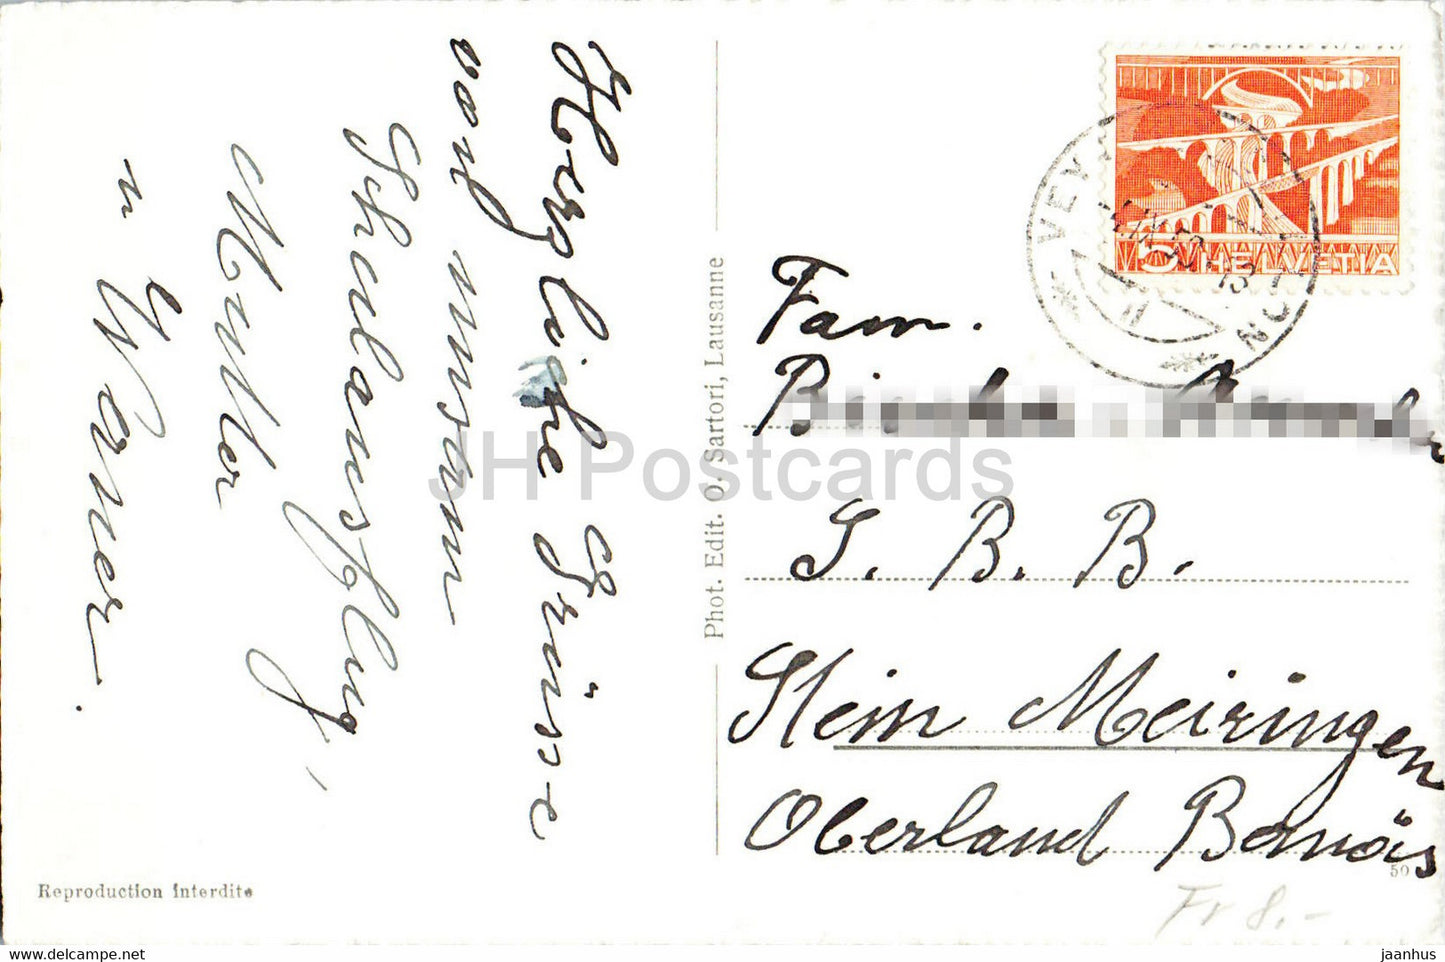 Herzliche Grüsse
von unserm
Schulausflug,
Mutter
u Werner.
Phot. Edit. O. Sartori, Lausanne
Reproduction interdite
5 HELVETIA
VEVEY
Fam.
S. B. B.
Stein Meiringen
Oberland Bernois
50
Fr 8.-
JH Postcards
www.delcampe.net
jaanhus